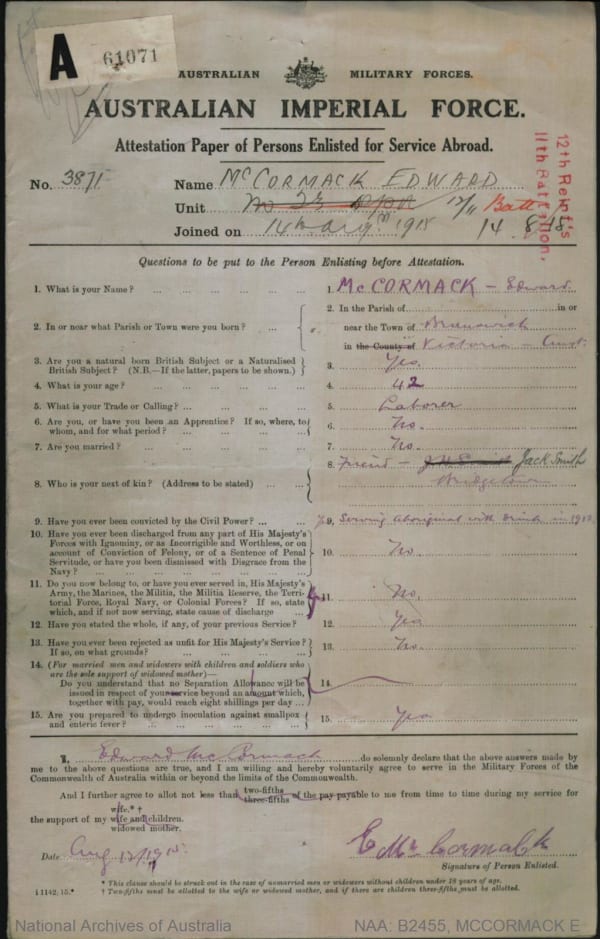 A 61071
AUSTRALIAN MILITARY FORCES.
AUSTRALIAN IMPERIAL FORCE.
Attestation Paper of Persons Enlisted for Service Abroad.
12th Reinf's
11th Battalion,
No. 3871 Name McCORMACK EDWARD
Unit No 23 Depot 12/11 Batt
Joined on 14th Augst 1915 14.8.15
Questions to be put to the Person Enlisting before Attestation.
1. What is your Name? ... 1. McCORMACK – Edward
2. In or near what Parish or Town were you born? ... 2. In the Parish of in or
near the Town of Brunswick
in the County of Victoria – Aust.
3. Are you a natural born British Subject or a Naturalised
British Subject? (N.B.—If the latter, papers to be shown.) 3. Yes
4. What is your age? ... 4. 42
5. What is your Trade or Calling? ... 5. Laborer
6. Are you, or have you been an Apprentice? If so, where, to
whom, and for what period? ... 6. No.
7. Are you married? ... 7. No.
8. Who is your next of kin? (Address to be stated) ... 8. Friend – Jack Smith
Bridgetown
9. Have you ever been convicted by the Civil Power? ... 9. Serving Aboriginal with drink in 1912
10. Have you ever been discharged from any part of His Majesty's
Forces with Ignominy, or as Incorrigible and Worthless, or on
account of Conviction of Felony, or of a Sentence of Penal
Servitude, or have you been dismissed with Disgrace from the
Navy? ... 10. No
11. Do you now belong to, or have you ever served in, His Majesty's
Army, the Marines, the Militia, the Militia Reserve, the Terri-
torial Force, Royal Navy, or Colonial Forces? If so, state
which, and if not now serving, state cause of discharge 11. No.
12. Have you stated the whole, if any, of your previous Service? 12. Yes
13. Have you ever been rejected as unfit for His Majesty's Service?
If so, on what grounds? 13. No.
14. (For married men and widowers with children and soldiers who
are the sole support of widowed mother)—
Do you understand that no Separation Allowance will be
issued in respect of your service beyond an amount which,
together with pay, would reach eight shillings per day ... 14.
15. Are you prepared to undergo inoculation against smallpox
and enteric fever? ... 15. Yes
I, Edward McCormack do solemnly declare that the above answers made by
me to the above questions are true, and I am willing and hereby voluntarily agree to serve in the Military Forces of the
Commonwealth of Australia within or beyond the limits of the Commonwealth.
And I further agree to allot not less than two-fifths
three-fifths of the pay payable to me from time to time during my service for
wife.*†
the support of my wife and children.
widowed mother.
Date Aug 12/1915 E McCormack
Signature of Person Enlisted.
* This clause should be struck out in the case of unmarried men or widowers without children under 18 years of age.
† Two-fifths must be allotted to the wife or widowed mother, and if there are children three-fifths must be allotted.
i 1142, 15.*
National Archives of Australia NAA: B2455, MCCORMACK E